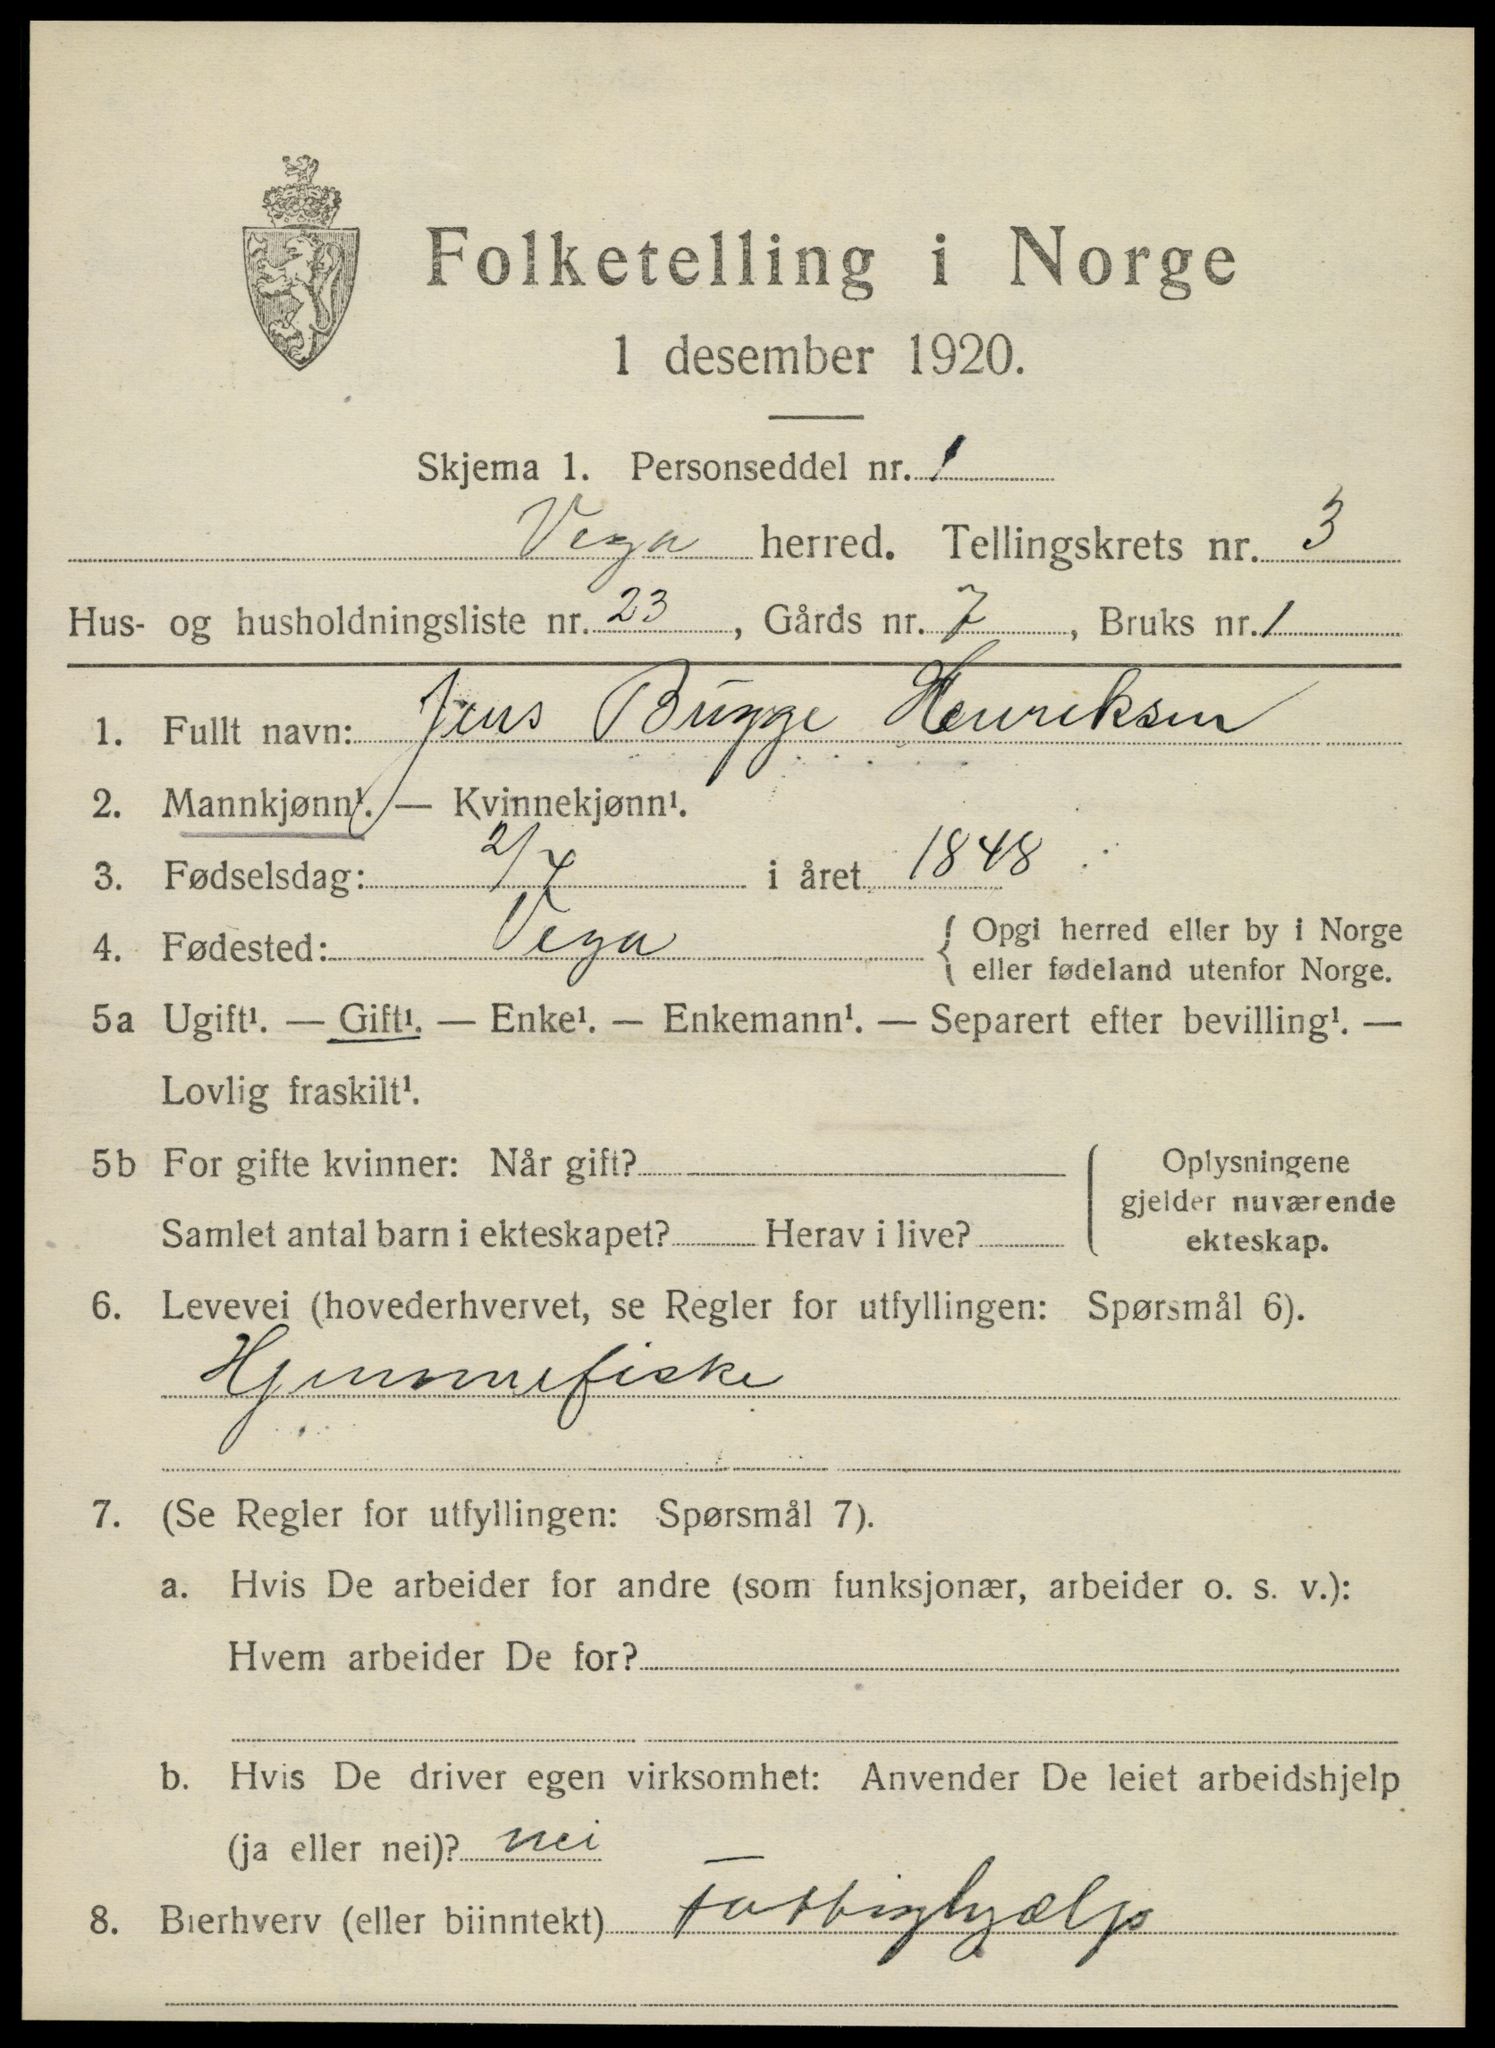 Folketelling i Norge
1 desember 1920.
Skjema 1. Personseddel nr. 1
Vega herred. Tellingskrets nr. 3
Hus- og husholdningsliste nr. 23, Gårds nr. 7, Bruks nr. 1
1. Fullt navn: Jens Bugge Henriksen
2. Mannkjønn¹. — Kvinnekjønn¹.
3. Fødselsdag: 2/4 i året 1848
4. Fødested: Vega { Opgi herred eller by i Norge
eller fødeland utenfor Norge.
5a Ugift¹. — Gift¹. — Enke¹. — Enkemann¹. — Separert efter bevilling¹. —
Lovlig fraskilt¹.
5b For gifte kvinner: Når gift?
Samlet antal barn i ekteskapet? Herav i live?
Oplysningene
gjelder nuværende
ekteskap.
6. Levevei (hovederhvervet, se Regler for utfyllingen: Spørsmål 6).
Hjemmefiske
7. (Se Regler for utfyllingen: Spørsmål 7).
a. Hvis De arbeider for andre (som funksjonær, arbeider o. s. v.):
Hvem arbeider De for?
b. Hvis De driver egen virksomhet: Anvender De leiet arbeidshjelp
(ja eller nei)? nei
8. Bierhverv (eller biinntekt) Fattighjælp